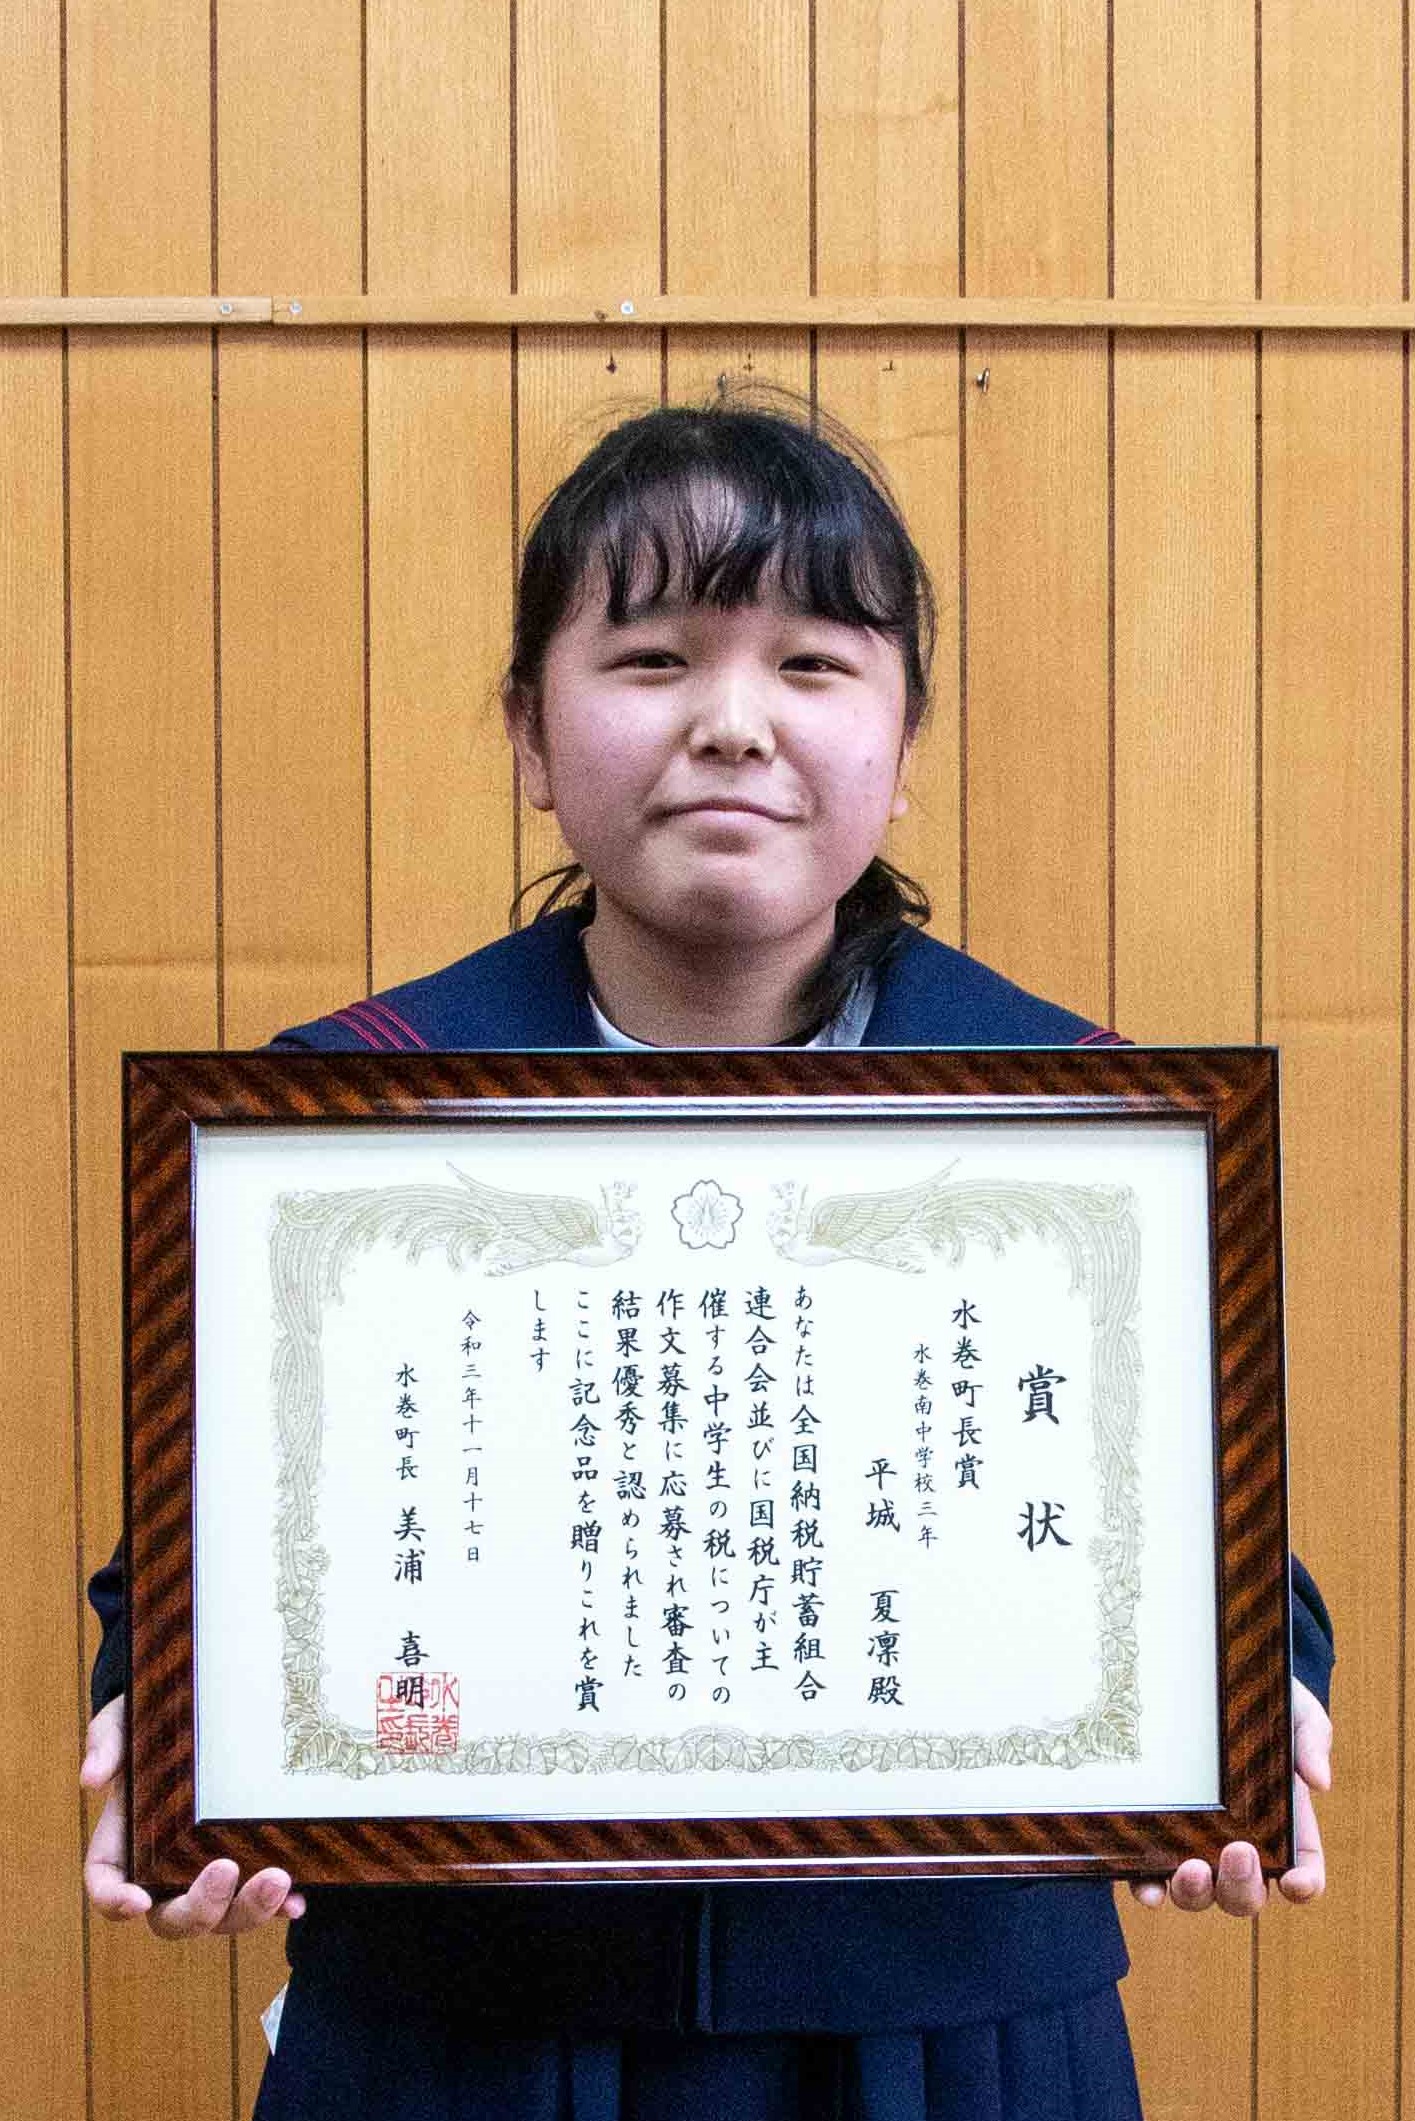 賞状
水巻町長賞
水巻南中学校三年
平城 夏凜殿
あなたは全国納税貯蓄組合
連合会並びに国税庁が主
催する中学生の税についての
作文募集に応募され審査の
結果優秀と認められました
ここに記念品を贈りこれを賞
します
令和三年十一月十七日
水巻町長 美浦 喜明